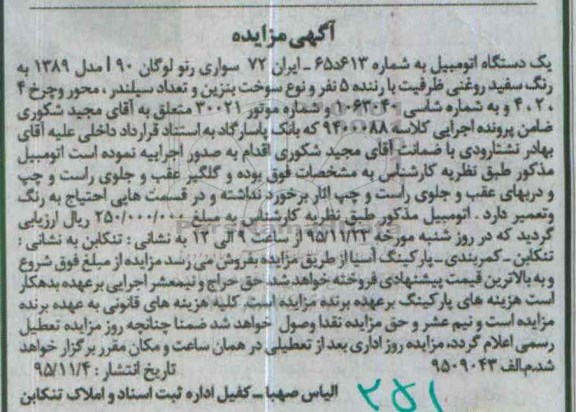 آگهی مزایده
یک دستگاه اتومبیل به شماره ۶۱۳د۶۵ـ ایران ۷۲ سواری رنو لوگان ۹۰ ا مدل ۱۳۸۹ به
رنگ سفید روغنی ظرفیت با رننده ۵ نفر و نوع سوخت بنزین و تعداد سیلندر ، محور وچرخ ۴
، ۲ ، ۴ و به شماره شاسی ۱۰۶۳۰۴۰ و شماره موتور ۳۰۰۲۱ متعلق به آقای مجید شکوری
ضامن پرونده اجرایی کلاسه ۹۴۰۰۰۸۸ که بانک پاسارگاد به استناد قرارداد داخلی علیه آقای
بهادر نشتارودی با ضمانت آقای مجید شکوری اقدام به صدور اجراییه نموده است اتومبیل
مذکور طبق نظریه کارشناس به مشخصات فوق بوده و گلگیر عقب و جلوی راست و چپ
و دربهای عقب و جلوی راست و چپ اثار برخورد نداشته و در قسمت هایی احتیاج به رنگ
وتعمیر دارد . اتومبیل مذکور طبق نظریه کارشناس به مبلغ ۲۵۰/۰۰۰/۰۰۰ ریال ارزیابی
گردید که در روز شنبه مورخه ۹۵/۱۱/۲۳ از ساعت ۹ الی ۱۲ به نشانی : تنکابن به نشانی :
تنکابن ـ کمربندی ـ پارکینگ آسیا از طریق مزایده بفروش می رسد مزایده از مبلغ فوق شروع
و به بالاترین قیمت پیشنهادی فروخته خواهد شد حق حراج و نیمعشر اجرایی برعهده بدهکار
است هزینه های پارکینگ برعهده برنده مزایده است. کلیه هزینه های قانونی به عهده برنده
مزایده است و نیم عشر و حق مزایده نقدا وصول خواهد شد ضمنا چنانچه روز مزایده تعطیل
رسمی اعلام گردد، مزایده روز اداری بعد از تعطیلی در همان ساعت و مکان مقرر برگزار خواهد
شد.م.الف ۹۵۰۹۰۴۳ تاریخ انتشار : ۹۵/۱۱/۴
الیاس صهبا ـ کفیل اداره ثبت اسناد و املاک تنکابن
۲۵۱